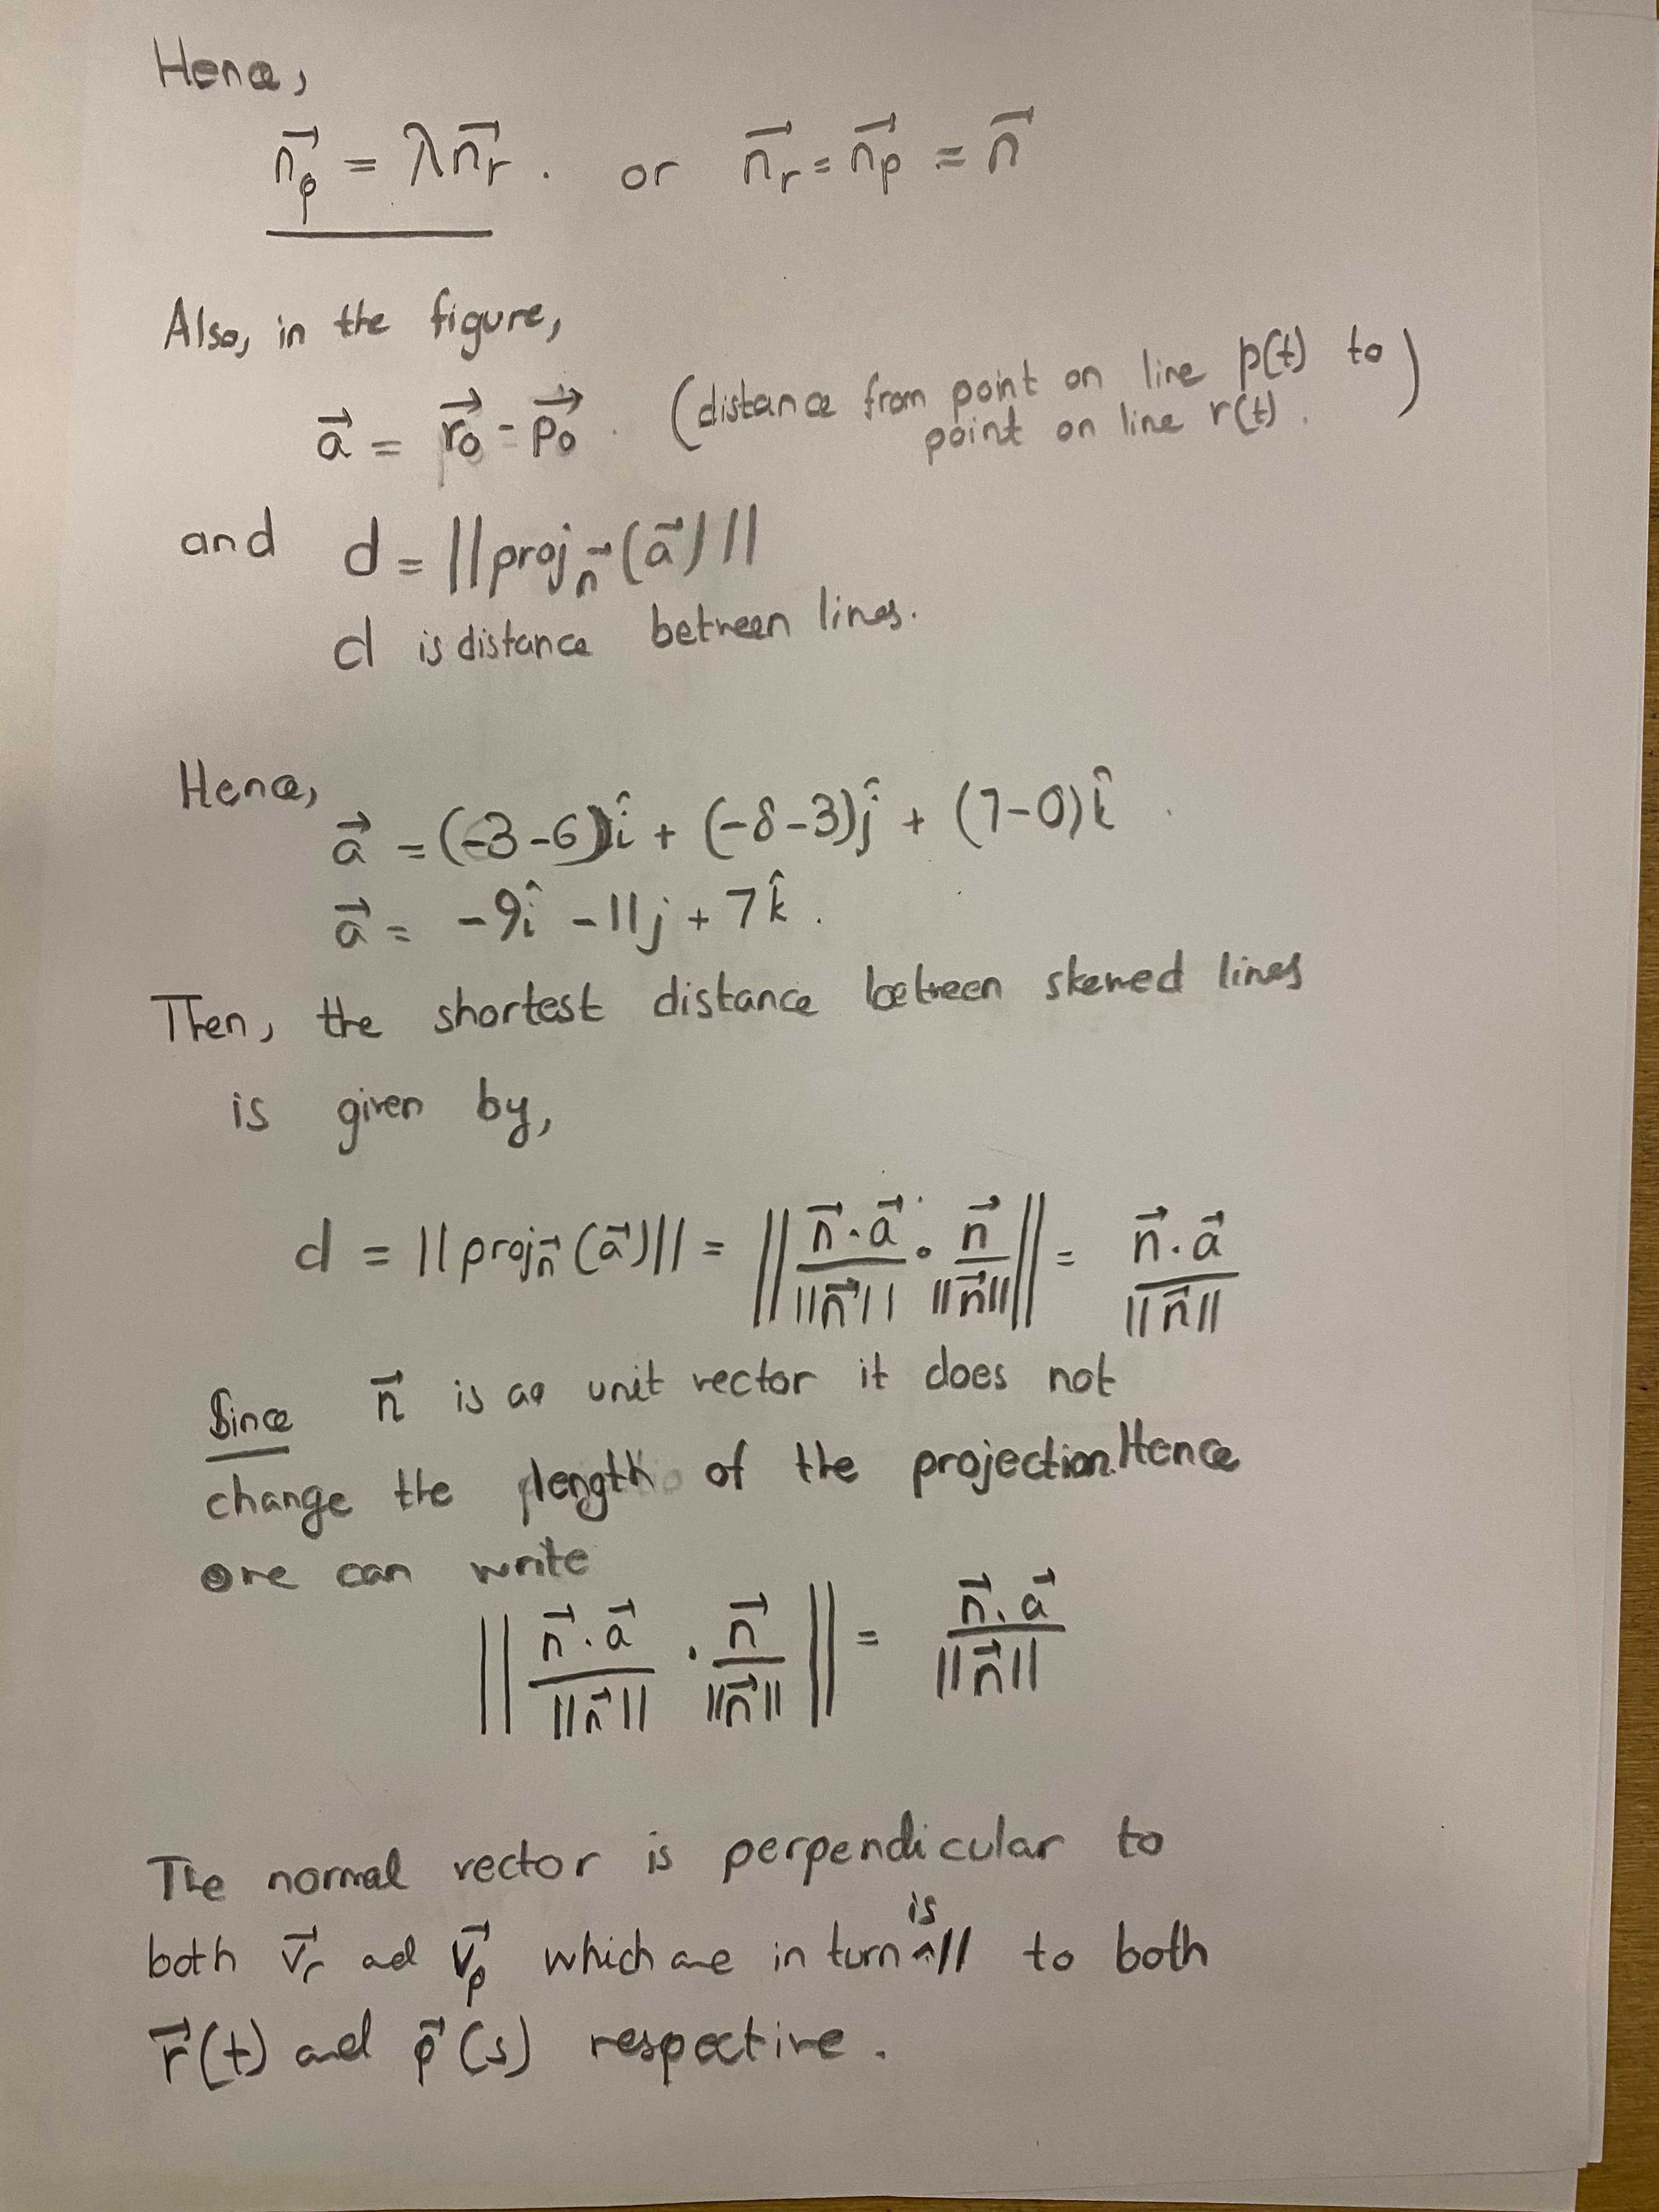 Hence,
n⃗ₚ = λn⃗ᵣ. or n⃗ᵣ = n⃗ₚ = n⃗
Also, in the figure,
a⃗ = r⃗₀ - p⃗₀. (distance from point on line p(t) to
point on line r(t).)
and d = ||proj_n⃗ (a⃗)||
d is distance between lines.
Hence,
a⃗ = (-3-6)î + (-8-3)ĵ + (7-0)k̂.
a⃗ = -9î - 11j + 7k̂.
Then, the shortest distance between skewed lines
is given by,
d = ||proj_n⃗ (a⃗)|| = || (n⃗·a⃗)/||n⃗|| · n⃗/||n⃗|| || = (n⃗·a⃗)/||n⃗||
Since n⃗ is a unit vector it does not
change the length of the projection. Hence
one can write
|| (n⃗·a⃗)/||n⃗|| · n⃗/||n⃗|| || = (n⃗·a⃗)/||n⃗||
The normal vector is perpendicular to
both v⃗ᵣ ad v⃗ₚ which are in turn is // to both
r⃗(t) and p⃗(s) respective.